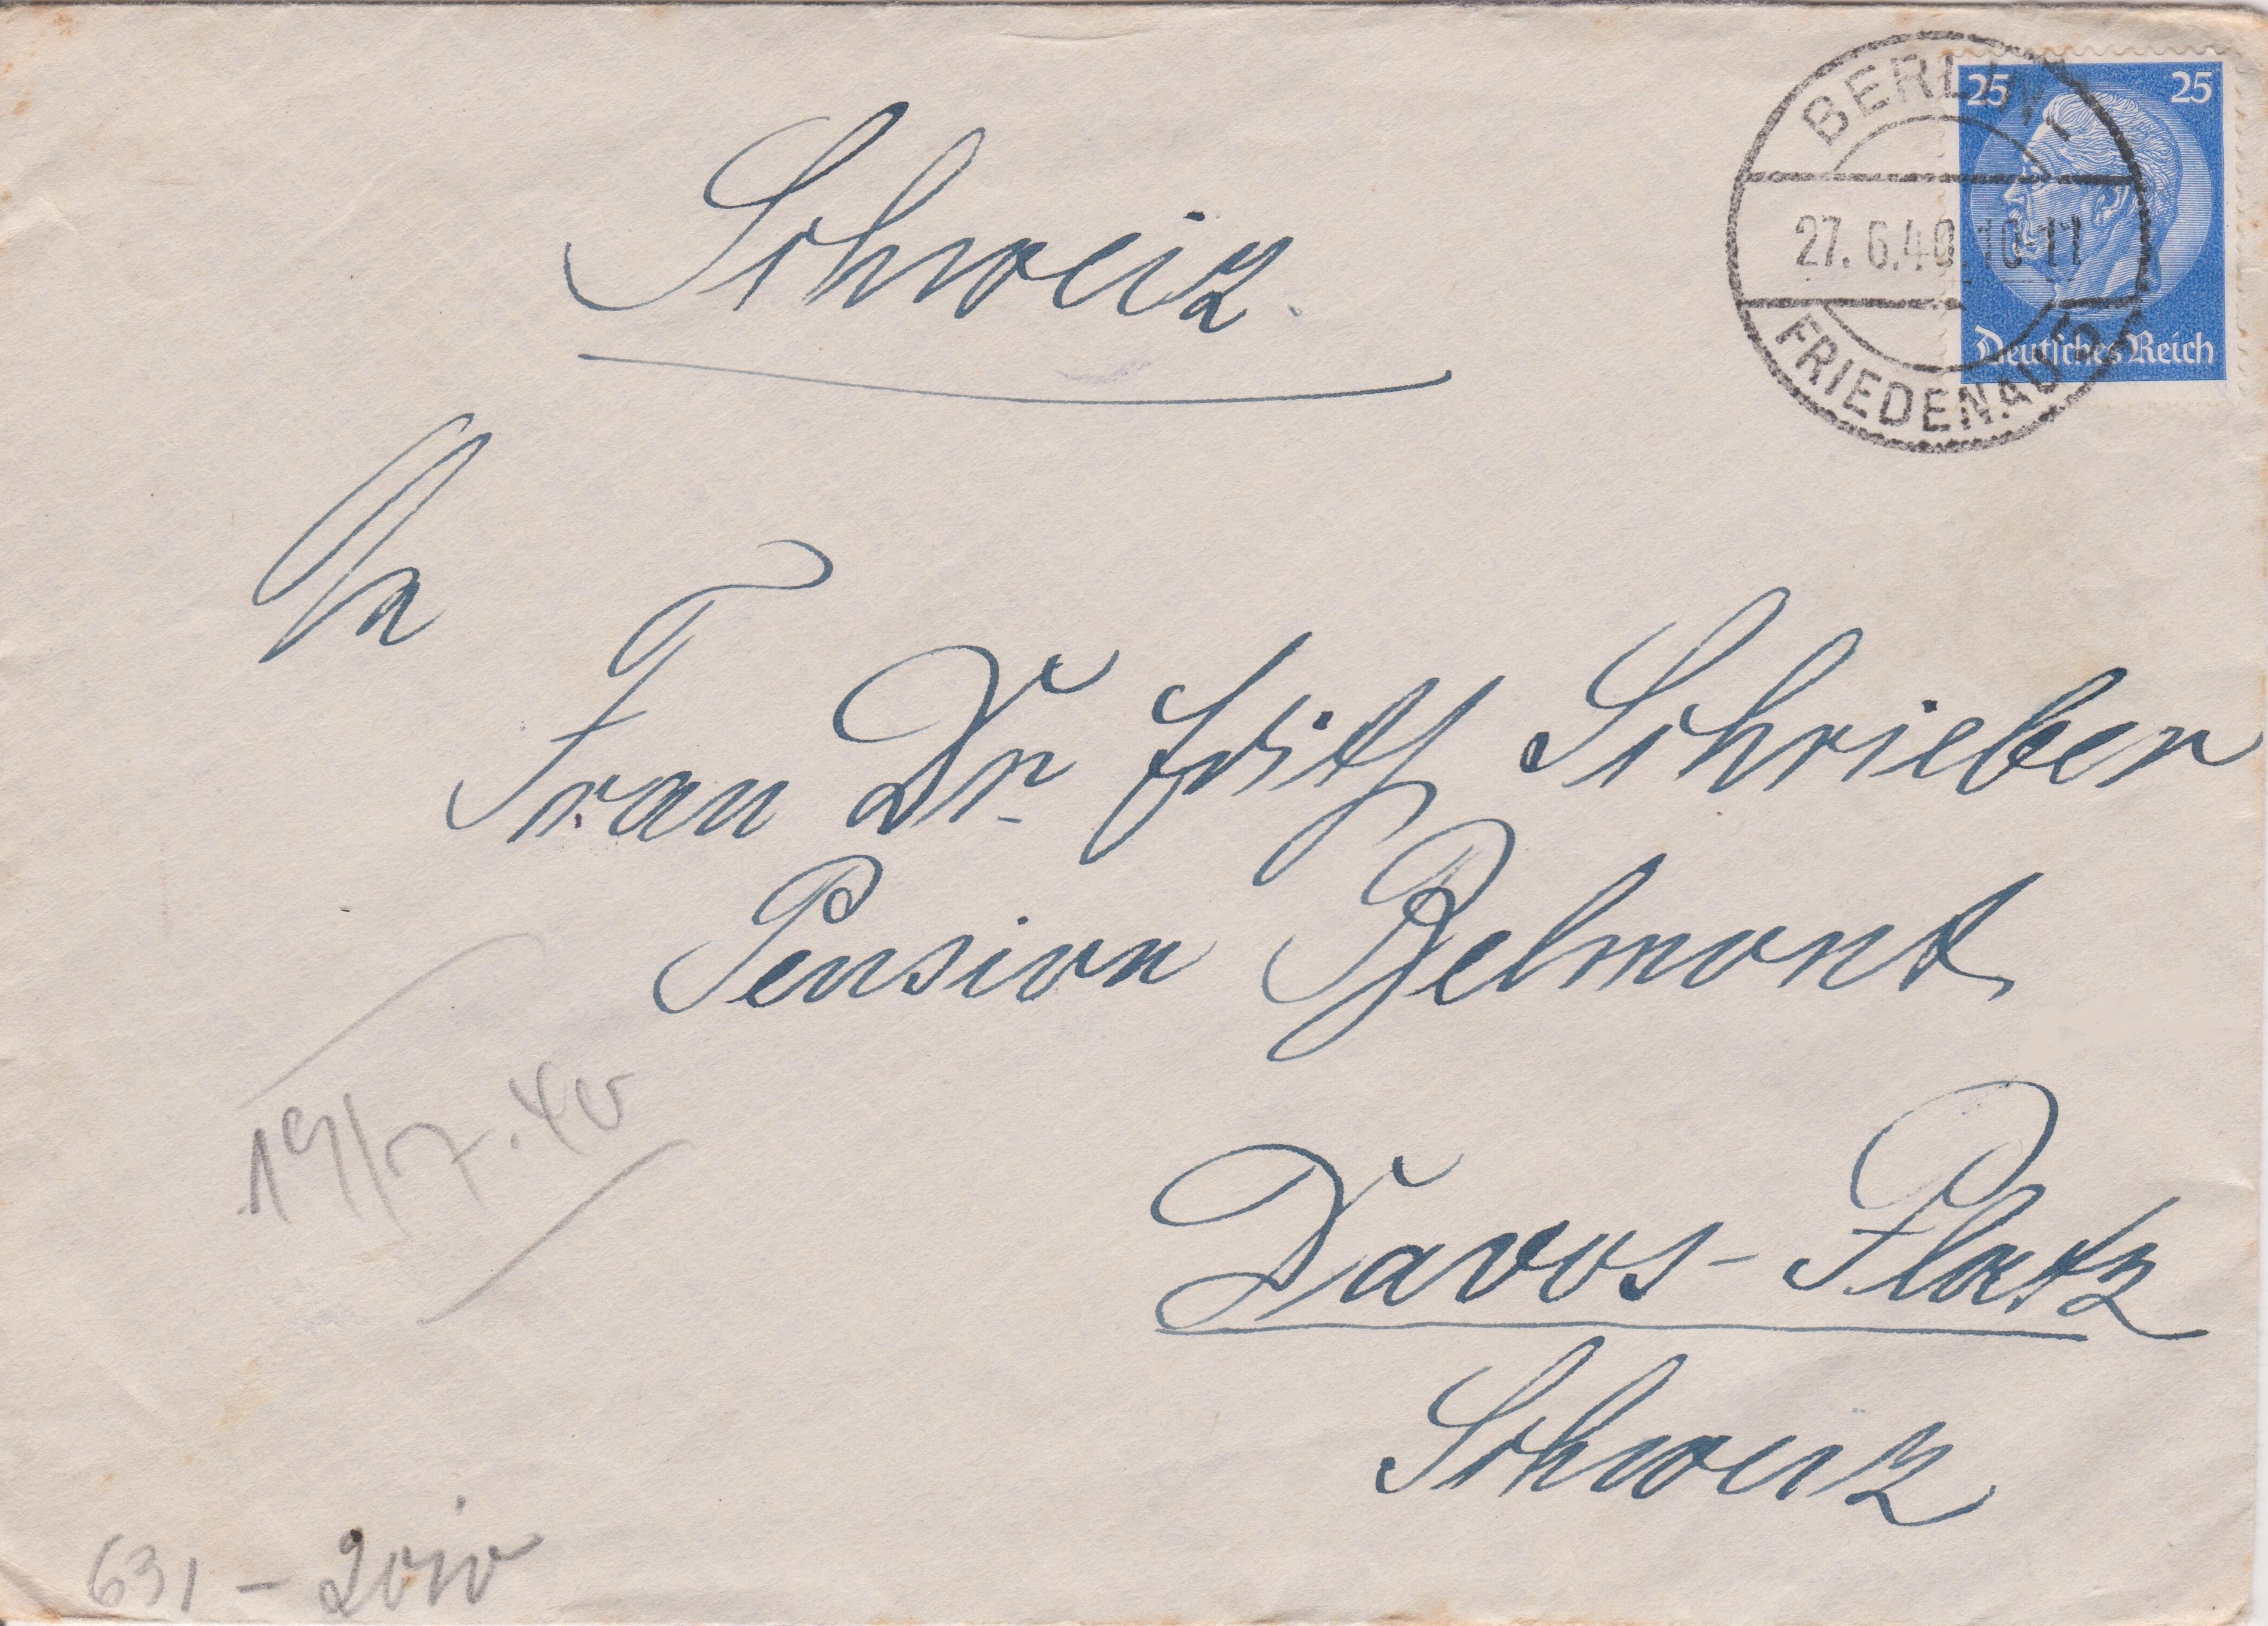 BERLIN
25 25
27.6.40.10-11
Deutsches Reich
FRIEDENAU
Schweiz.
An
Frau Dr. Edith Schrieber
Pension Belmont
19/7.40
Davos-Platz
Schweiz
631 -